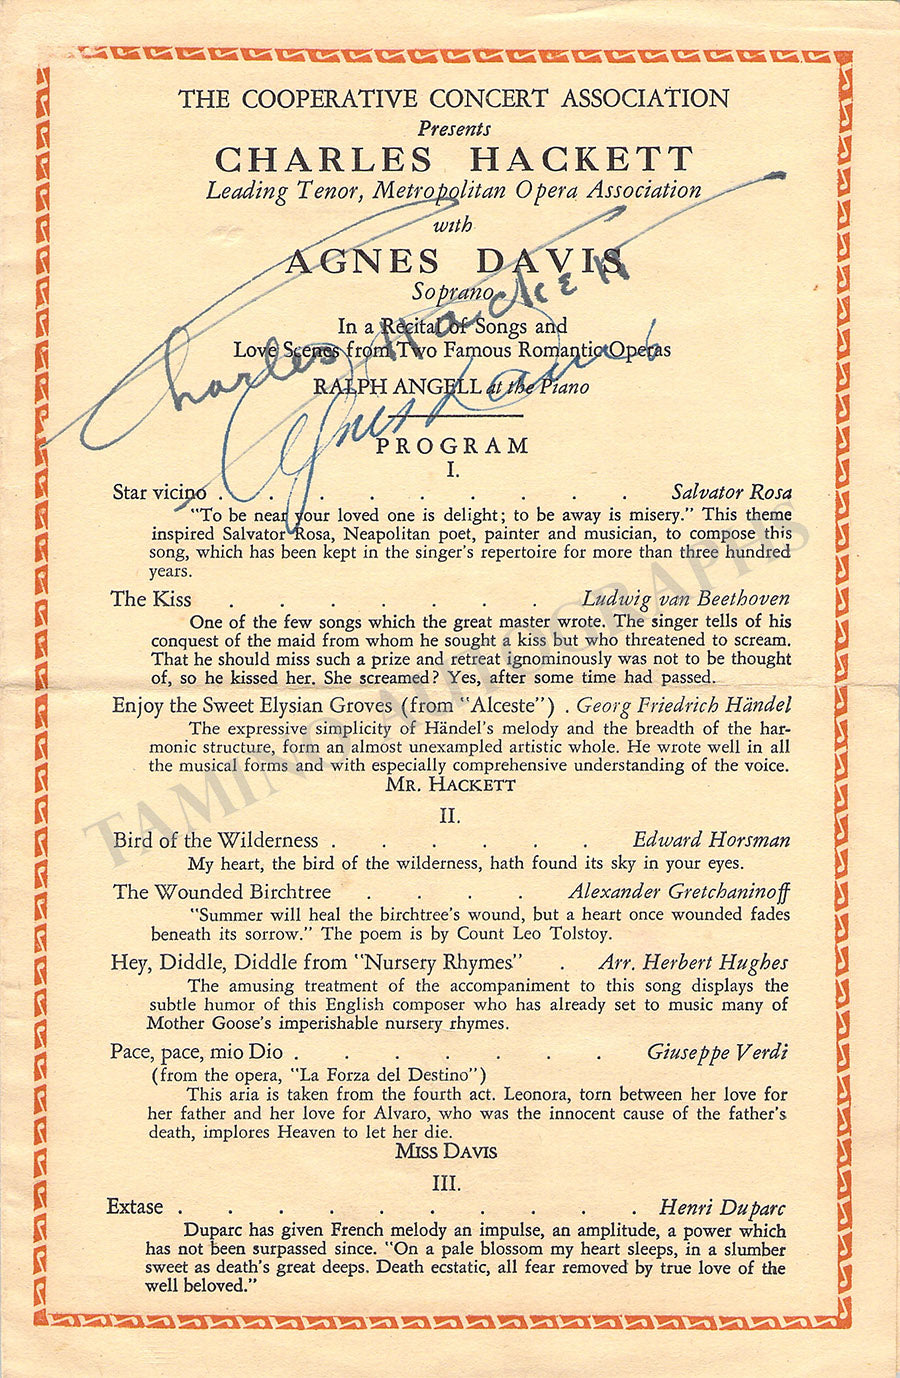 THE COOPERATIVE CONCERT ASSOCIATION
Presents
CHARLES HACKETT
Leading Tenor, Metropolitan Opera Association
with
AGNES DAVIS
Soprano
In a Recital of Songs and
Love Scenes from Two Famous Romantic Operas
RALPH ANGELL at the Piano
Charles Hackett
Agnes Davis
PROGRAM
I.
Star vicino . . . . . . . . . Salvator Rosa
"To be near your loved one is delight; to be away is misery." This theme
inspired Salvator Rosa, Neapolitan poet, painter and musician, to compose this
song, which has been kept in the singer's repertoire for more than three hundred
years.
The Kiss . . . . . . . Ludwig van Beethoven
One of the few songs which the great master wrote. The singer tells of his
conquest of the maid from whom he sought a kiss but who threatened to scream.
That he should miss such a prize and retreat ignominously was not to be thought
of, so he kissed her. She screamed? Yes, after some time had passed.
Enjoy the Sweet Elysian Groves (from "Alceste") . Georg Friedrich Händel
The expressive simplicity of Händel's melody and the breadth of the har-
monic structure, form an almost unexampled artistic whole. He wrote well in all
the musical forms and with especially comprehensive understanding of the voice.
MR. HACKETT
II.
Bird of the Wilderness . . . . . . Edward Horsman
My heart, the bird of the wilderness, hath found its sky in your eyes.
The Wounded Birchtree . . . . Alexander Gretchaninoff
"Summer will heal the birchtree's wound, but a heart once wounded fades
beneath its sorrow." The poem is by Count Leo Tolstoy.
Hey, Diddle, Diddle from "Nursery Rhymes" . Arr. Herbert Hughes
The amusing treatment of the accompaniment to this song displays the
subtle humor of this English composer who has already set to music many of
Mother Goose's imperishable nursery rhymes.
Pace, pace, mio Dio . . . . . . . Giuseppe Verdi
(from the opera, "La Forza del Destino")
This aria is taken from the fourth act. Leonora, torn between her love for
her father and her love for Alvaro, who was the innocent cause of the father's
death, implores Heaven to let her die.
MISS DAVIS
III.
Extase . . . . . . . . . . Henri Duparc
Duparc has given French melody an impulse, an amplitude, a power which
has not been surpassed since. "On a pale blossom my heart sleeps, in a slumber
sweet as death's great deeps. Death ecstatic, all fear removed by true love of the
well beloved."
TAMINO AUTOGRAPHS